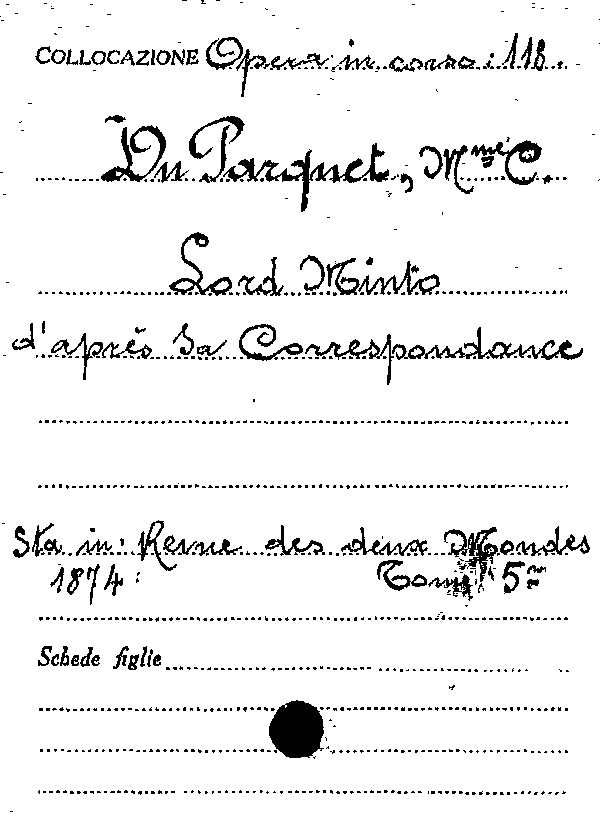 COLLOCAZIONE Opera in corso: 118.
Du Parquet, Mme C.
Lord Minto
d'après sa Correspondance
Sta in: Revue des deux Mondes
1874: Tome 5me
Schede figlie